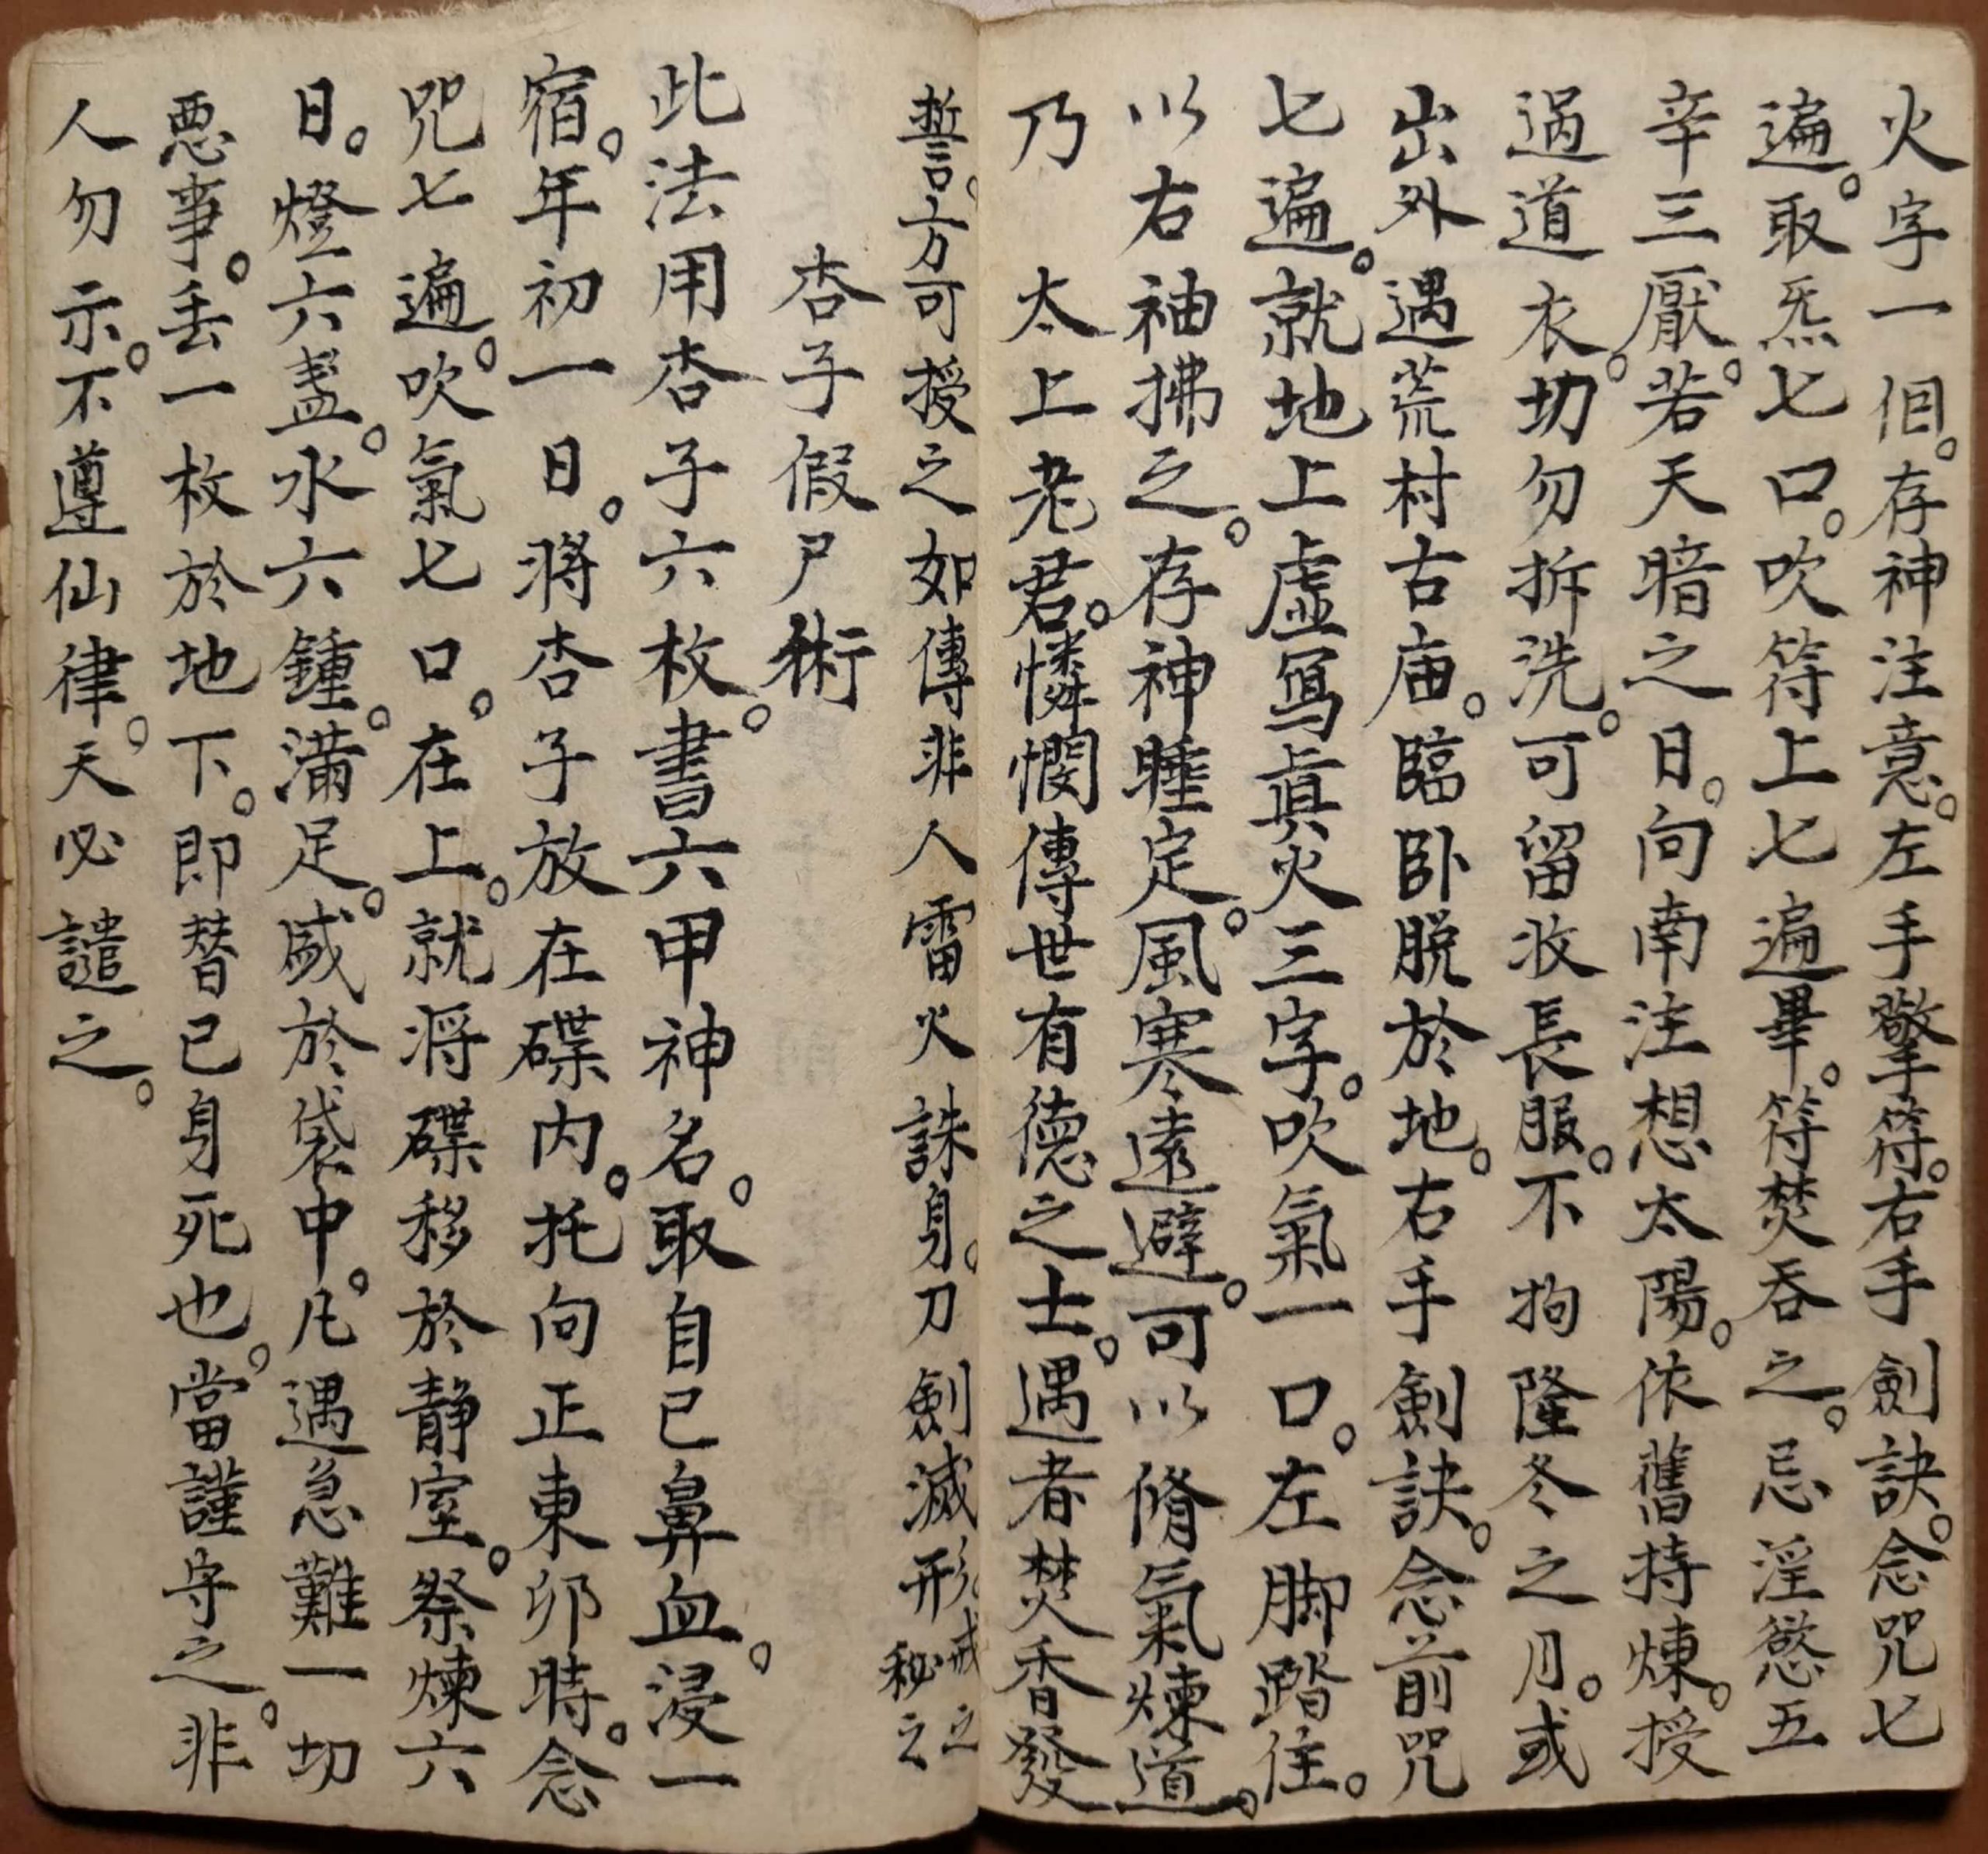 火字一個。存神注意。左手擎符。右手劍訣。念咒七
遍。取炁七口。吹符上七遍畢。符焚吞之。忌淫慾五
辛三厭。若天暗之日。向南注想太陽。依舊持煉。授
過道衣。切勿拆洗。可留收長服。不拘隆冬之月。或
出外遇荒村古庙。臨卧脱於地。右手劍訣。念前咒
七遍。就地上虛寫真火三字。吹氣一口。左脚踏住。
以右袖拂之。存神睡定。風寒遠避。可以脩氣煉道。
乃太上老君。憐憫傳世有德之士。遇者焚香發
誓。方可授之如傳非人雷火誅身。刀劍滅形戒之秘之
杏子假尸術
此法用杏子六枚。書六甲神名。取自己鼻血。浸一
宿。年初一日。將杏子放在碟内。托向正東卯時。念
咒七遍。吹氣七口。在上。就将碟移於静室。祭煉六
日。燈六盞。水六鍾。满足。盛於袋中。凡遇急難一切
悪事。丢一枚於地下。即替己身死也。當謹守之。非
人勿示。不遵仙律。天必譴之。